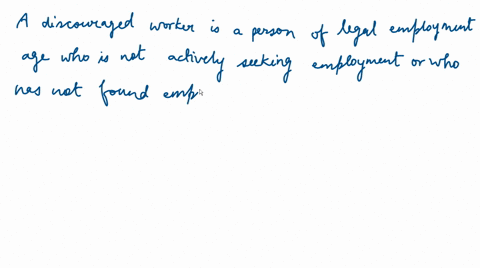 A discouraged worker is a person of legal employment
age who is not actively seeking employment or who
has not found emp